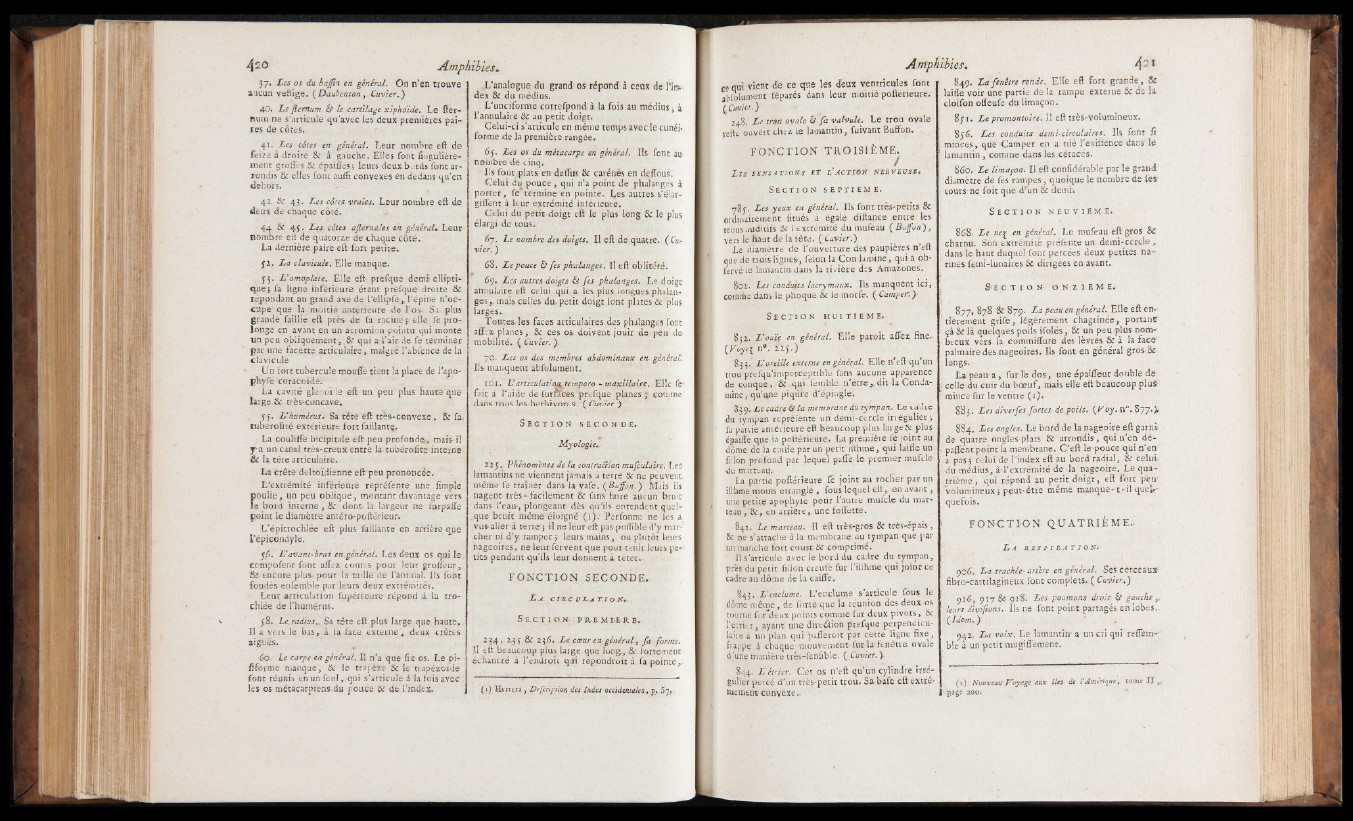 420
Amphibies.
37. Les os du bassin en général. On n'en trouve
aucun vestige. (Daubenton, Cuvier.)
40. Le sternum & le cartilage xiphoïde. Le ster-
num ne s'articule qu'avec les deux premières pai-
res de côtes.
41. Les côtes en général. Leur nombre est de
seize à droite & à gauche. Elles sont singulière-
ment grosses & épaisses: leurs deux bords sont ar-
rondis & elles sont aussi convexes en dedans qu'en
dehors.
42 & 43. Les côtes vraies. Leur nombre est de
deux de chaque côté.
44 & 45. Les côtes asternales en général. Leur
nombre est de quatorze de chaque côté.
La dernière paire est fort petite.
52. La clavicule. Elle manque.
53. L'omoplate. Elle est presque demi ellipti-
que; sa ligne inférieure étant presque droite &
répondant au grand axe de l'ellipse, l'épine n'oc-
cupe que la moitié antérieure de l'os. Sa plus
grande saillie est près de sa racine; elle se pro-
longe en avant en un acromion pointu qui monte
un peu obliquement, & qui a l'air de se terminer
par une facette articulaire, malgré l'absence de la
clavicule
Un fort tubercule mousse tient la place de l'apo-
physe coracoïde.
La cavité glénoïde est un peu plus haute que
large & très-concave.
55. L'humérus. Sa tête est très-convexe, & sa
tubérosité extérieure fort saillante.
La coulisse bicipitale est peu profonde, mais il
y a un canal très-creux entre la tubérosité interne
& la tête articulaire.
La crête deltoïdienne est peu prononcée.
L'extrémité inférieure représente une simple
poulie, un peu oblique, montant davantage vers
le bord interne, & dont la largeur ne surpasse
point le diamètre antéro-postérieur.
L'épitrochlée est plus saillante en arrière que
l'épicondyle.
56. L'avant-bras en général. Les deux os qui le
composent sont assez courts pour leur grosseur,
& encore plus pour la taille de l'animal. Ils sont
soudés ensemble par leurs deux extrémités.
Leur articulation supérieure répond à la tro-
chlée de l'humérus.
58. Le radius. Sa tête est plus large que haute.
Il a vers le bas, à sa face externe, deux crêtes
aiguës.
60. Le carpe en général. Il n'a que six os. Le pi-
siforme manque, & le trapèze & le trapézoïde
sont réunis en un seul, qui s'articule à la fois avec
les os métacarpiens du pouce & de l'index.
L'analogue du grand os répond à ceux de l'in-
dex & du médius.
L'unciforme correspond à la fois au médius, à
l'annulaire & au petit doigt.
Celui-ci s'articule en même temps avec le cunéi-
forme de la première rangée.
65. Les os du métacarpe en général. Ils sont au
nombre de cinq.
Ils sont plats en dessus & carénés en dessous.
Celui du pouce, qui n'a point de phalanges à
porter, se termine en pointe. Les autres s'élar-
gissent à leur extrémité inférieure.
Celui du petit doigt est le plus long & le plus
élargi de tous.
67. Le nombre des doigts. Il est de quatre. (Cu-
vier.)
68. Le pouce & ses phalanges. Il est oblitéré.
69. Les autres doigts & ses phalanges. Le doigt
annulaire est celui qui a les plus longues phalan-
ges, mais celles du petit doigt sont plates & plus
larges.
Toutes les faces articulaires des phalanges sont
assez planes, & ces os doivent jouir de peu de
mobilité. (Cuvier.)
70. Les os des membres abdominaux en général.
Ils manquent absolument.
101. L'articulation temporo-maxillaire. Elle se
fait à l'aide de surfaces presque planes; comme
dans tous les herbivores. (Cuvier.)
SECTION SECONDE.
Myologie.
225. Phénomènes de la contraction musculaire. Les
lamantins ne viennent jamais à terre & ne peuvent
même se traîner dans la vase. (Buffon.) Mais ils
nagent très-facilement & sans faire aucun bruit
dans l'eau, plongeant dès qu'ils entendent quel-
que bruit même éloigné (1). Personne ne les a
vus aller à terre; il ne leur est pas possible d'y mar-
cher ni d'y ramper; leurs mains, ou plutôt leurs
nageoires, ne leur servent que pour tenir leurs pe-
tits pendant qu'ils leur donnent à teter.
FONCTION SECONDE.
LA CIRCULATION.
SECTION PREMIÈRE.
234, 235 & 236. Le cœur en général, sa forme.
Il est beaucoup plus large que long, & fortement
échancré à l'endroit qui répondroit à sa pointe,
(1) Herrera, Description des Indes occidentales, p. 57,
Amphibies.
421
ce qui vient de ce que les deux ventricules sont
absolument séparés dans leur moitié postérieure.
(Cuvier.)
248. Le trou ovale & sa valvule. Le trou ovale
reste ouvert chez le lamantin, suivant Buffon.
FONCTION TROISIÈME.
LES SENSATIONS ET L'ACTION NERVEUSE.
SECTION SEPTIEME.
785. Les yeux en général. Ils sont très-petits &
ordinairement situés à égale distance entre les
trous auditifs & l'extrémité du museau (Buffon),
vers le haut de la tête. (Cuvier.)
Le diamètre de l'ouverture des paupières n'est
que de trois lignes, selon la Condamine, qui a ob-
servé le lamantin dans la rivière des Amazones.
802. Les conduits lacrymaux. Ils manquent ici,
comme dans le phoque & le morse. (Camper.)
SECTION HUITIEME.
832. L'ouïe en général. Elle paroît assez fine.
(Voyez n°. 225.)
833. L'oreille externe en général. Elle n'est qu'un
trou presqu'imperceptible sans aucune apparence
de conque, & qui semble n'être, dit la Conda-
mine, qu'une piqûre d'épingle.
839. Le cadre & la membrane du tympan. Le cadre
du tympan représente un demi-cercle irrégulier;
sa partie antérieure est beaucoup plus large & plus
épaisse que la postérieure. La première se joint au
dôme de la caisse par un petit isthme, qui laisse un
sillon profond par lequel passe le premier muscle
du marteau.
La partie postérieure se joint au rocher par un
isthme moins étranglé, sous lequel est, en avant,
une petite apophyse pour l'autre muscle du mar-
teau, &, en arrière, une fossette.
842. Le marteau. Il est très-gros & très-épais,
& ne s'attache à la membrane du tympan que par
un manche fort court & comprimé.
Il s'articule avec le bord du cadre du tympan,
près du petit sillon creusé sur l'isthme qui joint ce
cadre au dôme de la caisse.
843. L'enclume. L'enclume s'articule sous le
dôme même, de sorte que la réunion des deux os
tourne sur deux points comme sur deux pivots, &
l'étrier, ayant une direction presque perpendicu-
laire à un plan qui passeroit par cette ligne fixe,
frappe à chaque mouvement sur la fenêtre ovale
d'une manière très-sensible. (Cuvier.)
844. L'étrier. Cet os n'est qu'un cylindre irré-
gulier percé d'un très-petit trou. Sa base est extrê-
mement convexe.
849. La fenêtre ronde. Elle est fort grande, &
laisse voir une partie de la rampe externe & de la
cloison osseuse du limaçon.
851. Le promontoire. Il est très-volumineux.
856. Les conduits demi-circulaires. Ils sont si
minces, que Camper en a nié l'existence dans le
lamantin, comme dans les cétacés.
860. Le limaçon. Il est considérable par le grand
diamètre de ses rampes, quoique le nombre de ses
tours ne soit que d'un & demi.
SECTION NEUVIÈME.
868. Le nez en général. Le museau est gros &
charnu. Son extrémité présente un demi-cercle,
dans le haut duquel sont percées deux petites na-
rines semi-lunaires & dirigées en avant.
SECTION ONZIEME.
877, 878 & 879. La peau en général. Elle est en-
tièrement grise, légèrement chagrinée, portant
çà & là quelques poils isolés, & un peu plus nom-
breux vers la commissure des lèvres & à la face
palmaire des nageoires. Ils sont en général gros &
longs.
La peau a, sur le dos, une épaisseur double de
celle du cuir du bœuf, mais elle est beaucoup plus
mince sur le ventre (1).
883. Les diverses sortes de poils. (Voy. n°. 877.)
884. Les ongles. Le bord de la nageoire est garni
de quatre ongles plats & arrondis, qui n'en dé-
passent point la membrane. C'est le pouce qui n'en
a pas; celui de l'index est au bord radial, & celui
du médius, à l'extrémité de la nageoire. Le qua-
trième, qui répond au petit doigt, est fort peu
volumineux; peut-être même manque-t-il quel-
quefois.
FONCTION QUATRIÈME.
LA RESPIRATION.
906. La trachée-artère en général. Ses cerceaux
fibro-cartilagineux sont complets. (Cuvier.)
916, 917 & 918. Les poumons droit & gauche,
leurs divisions. Ils ne sont point partagés en lobes.
(Idem.)
942. La voix. Le lamantin a un cri qui ressem-
ble à un petit mugissement.
(1) Nouveau Voyage aux îles de l'Amérique, tome II,
page 200.